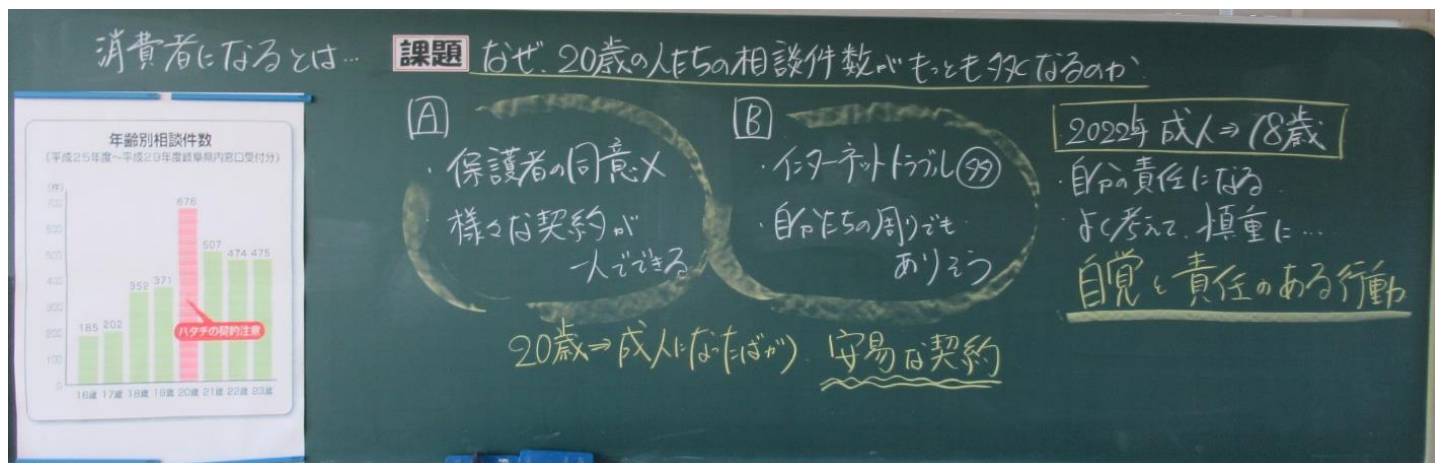 消費者になるとは…
課題 なぜ、20歳の人たちの相談件数がもっとも多くなるのか
年齢別相談件数
(平成25年度～平成29年度岐阜県内窓口受付分)
(件)
700
600
500
400
300
200
100
0
185
202
352
371
676
507
474
475
ハタチの契約注意
16歳 17歳 18歳 19歳 20歳 21歳 22歳 23歳
A
・保護者の同意×
・様々な契約が
一人でできる
B
・インターネットトラブル 99
・自分たちの周りでも
ありそう
20歳⇒成人になったばかり 安易な契約
2022年 成人⇒18歳
・自分の責任になる
・よく考えて、慎重に…
自覚と責任のある行動